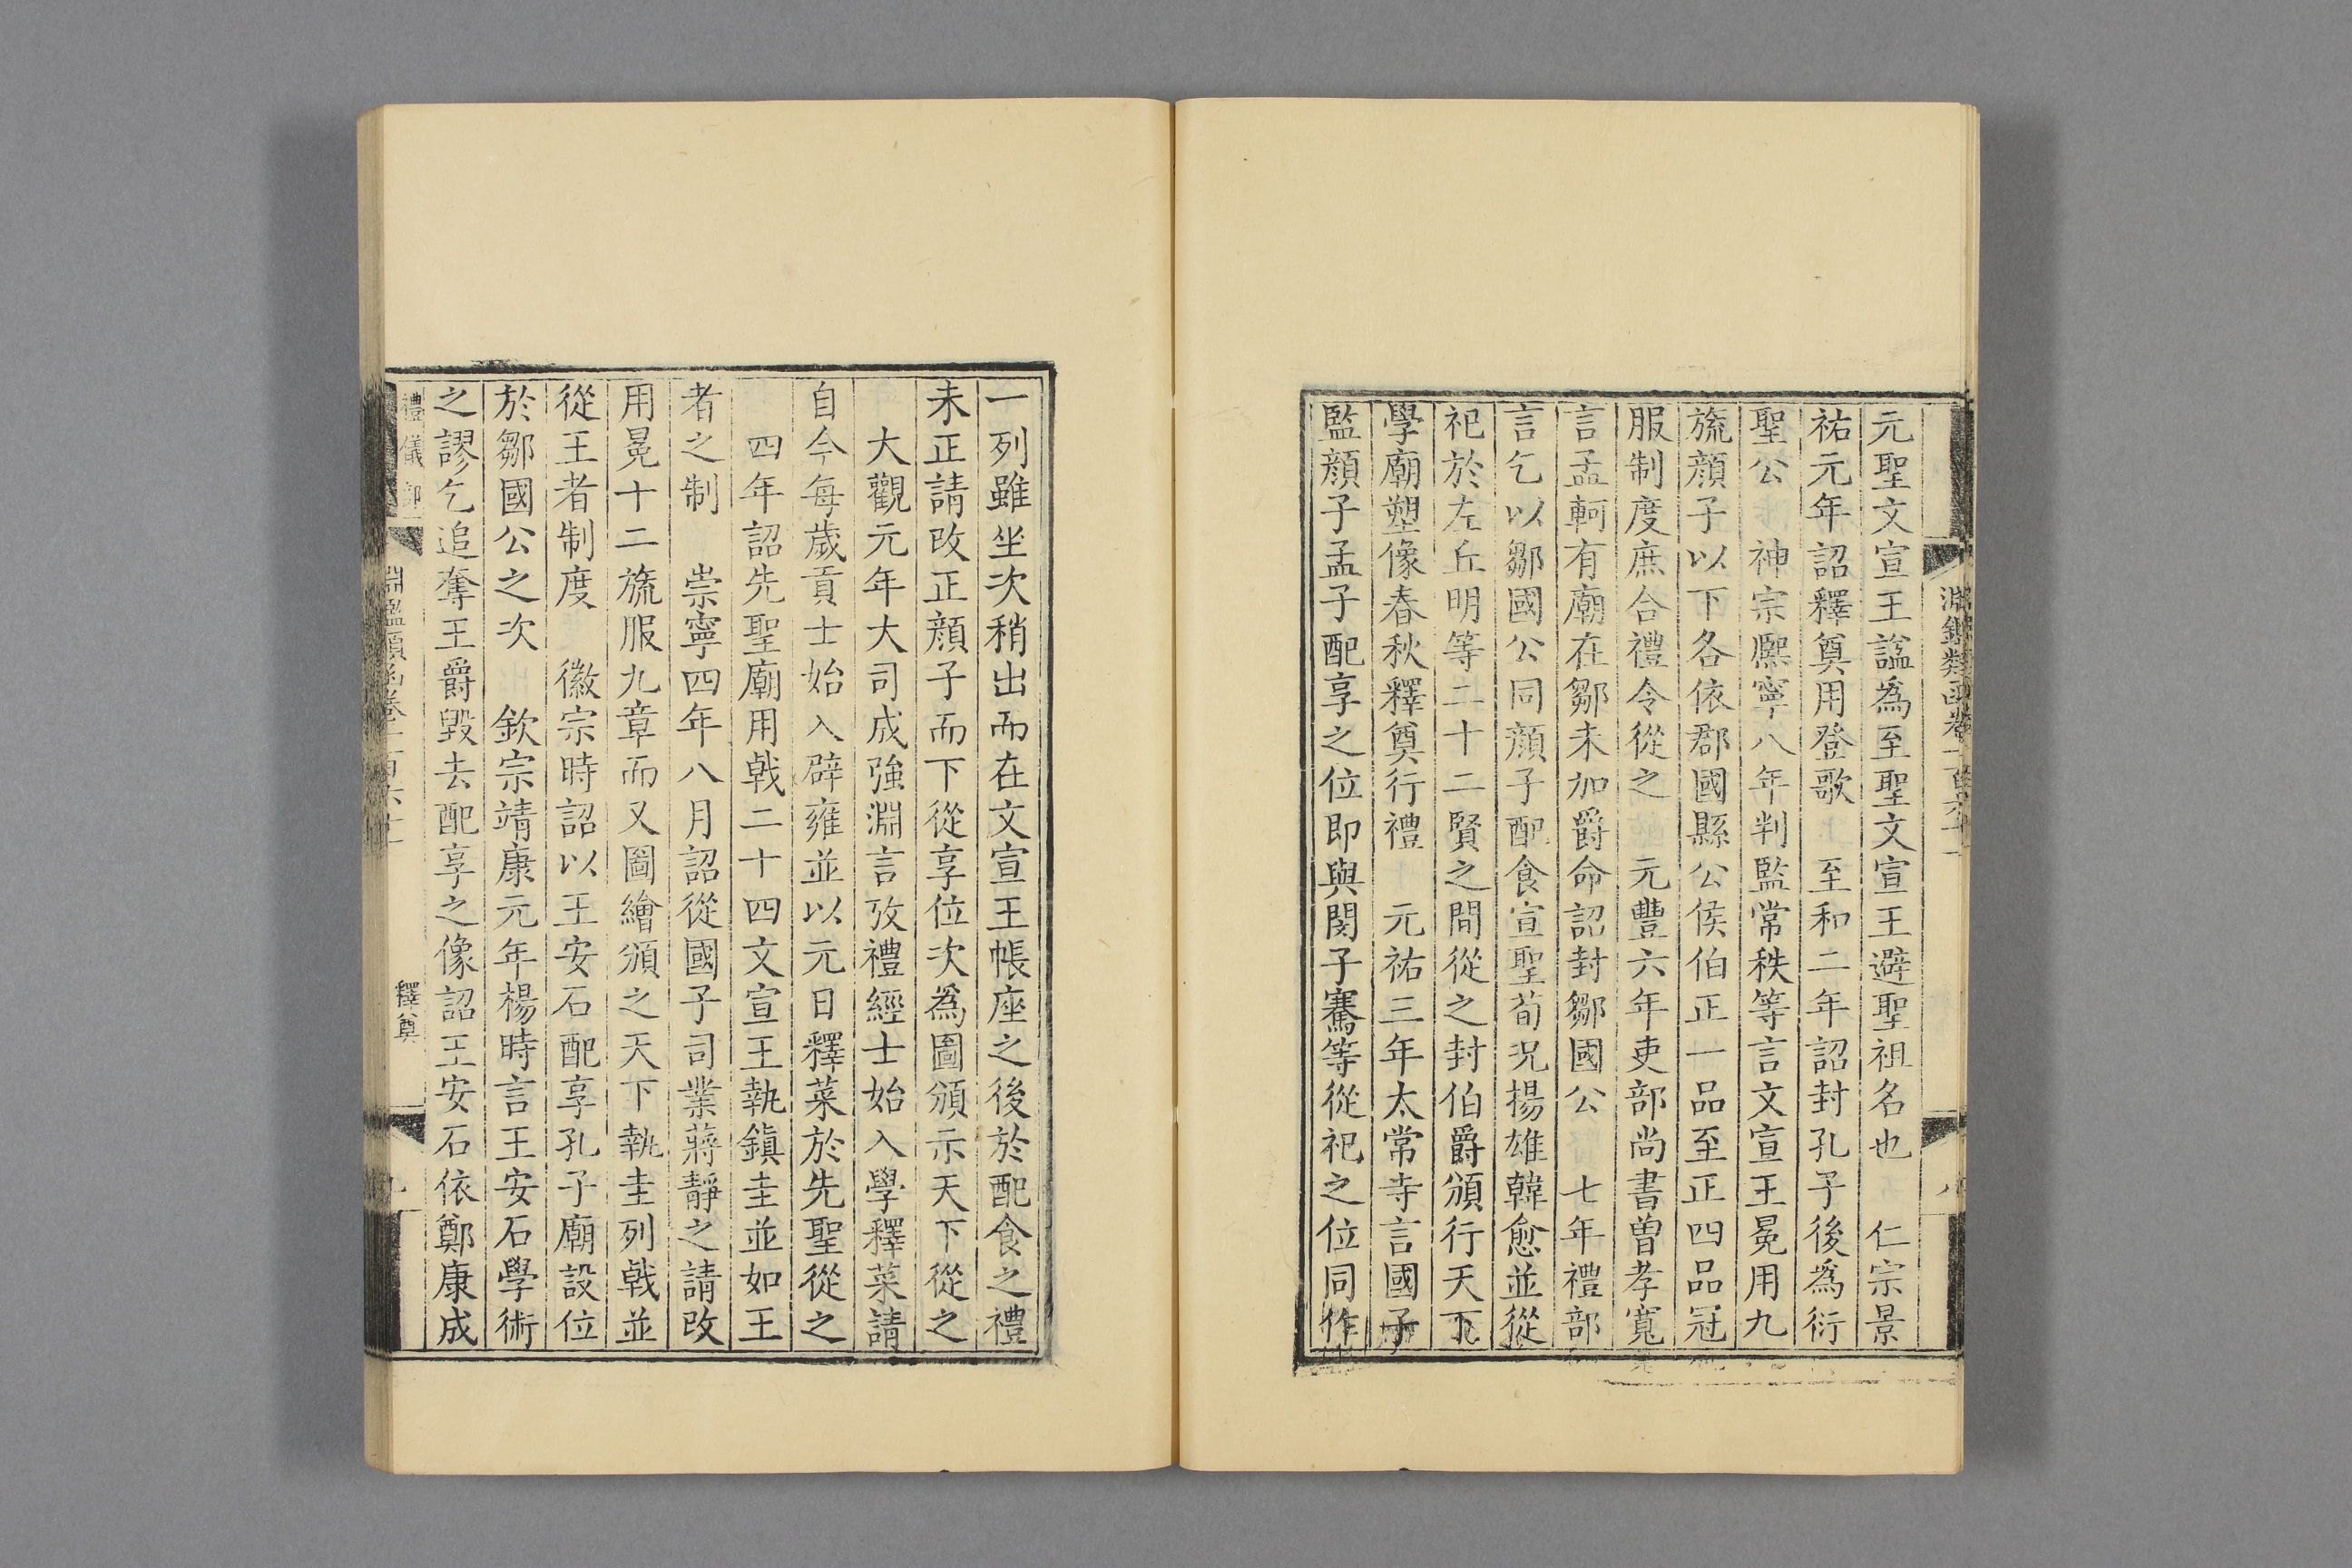 元聖文宣王諡為至聖文宣王避聖祖名也 仁宗景
祐元年詔釋奠用登歌 至和二年詔封孔子後為衍
聖公 神宗熈寧八年判監常秩等言文宣王冕用九
旒顔子以下各依郡國縣公侯伯正一品至正四品冠
服制度庶合禮令從之 元豐六年吏部尚書曾孝寬
言孟軻有廟在鄒未加爵命詔封鄒國公 七年禮部
言乞以鄒國公同顔子配食宣聖荀况揚雄韓愈並從
祀於左丘明等二十二賢之間從之封伯爵頒行天下
學廟塑像春秋釋奠行禮 元祐三年太常寺言國子
監顔子孟子配享之位即與閔子騫等從祀之位同作
淵鑑類函卷一百六十一
八
一列雖坐次稍出而在文宣王帳座之後於配食之禮
未正請改正顔子而下從享位次為圖頒示天下從之
大觀元年大司成強淵言攷禮經士始入學釋菜請
自今每歲貢士始入辟雍並以元日釋菜於先聖從之
四年詔先聖廟用戟二十四文宣王執鎮圭並如王
者之制 崇寧四年八月詔從國子司業蔣靜之請改
用冕十二旒服九章而又圖繪頒之天下執圭列戟並
從王者制度 徽宗時詔以王安石配享孔子廟設位
於鄒國公之次 欽宗靖康元年楊時言王安石學術
之謬乞追奪王爵毀去配享之像詔王安石依鄭康成
禮儀部
淵鑑類函卷一百六十一
釋奠
九